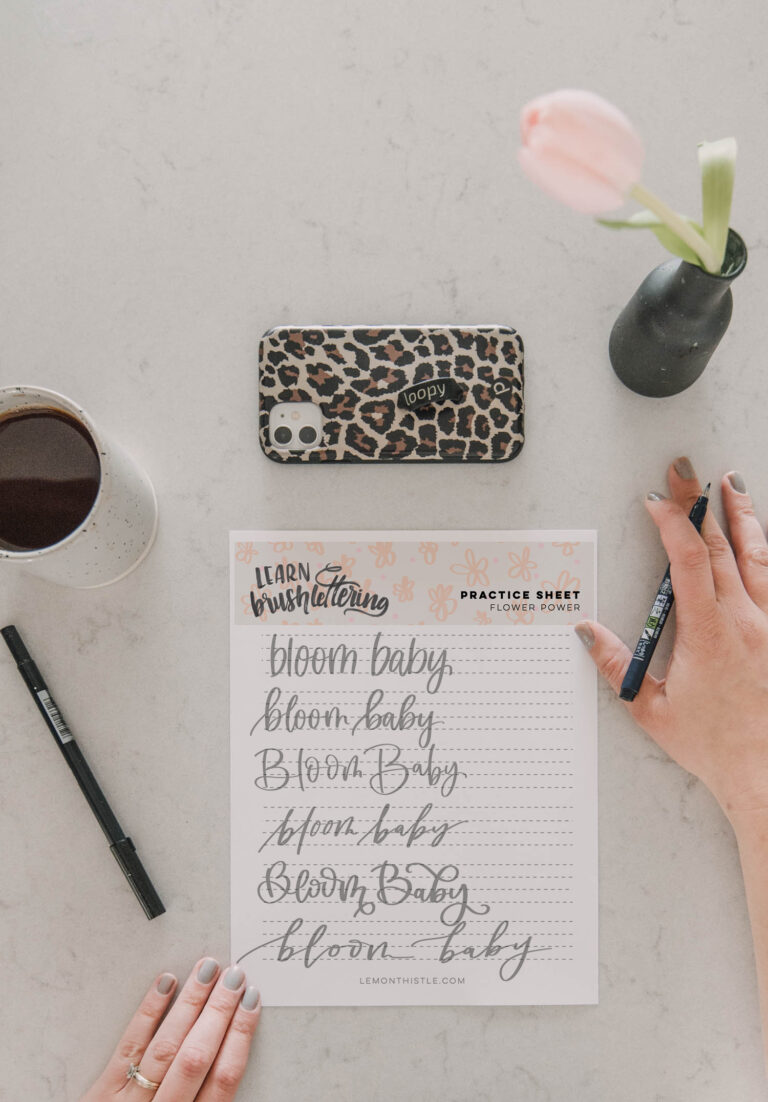 loopy
LEARN
brushlettering
PRACTICE SHEET
FLOWER POWER
bloom baby
bloom baby
Bloom Baby
bloom baby
Bloom Baby
bloom baby
LEMONTHISTLE.COM